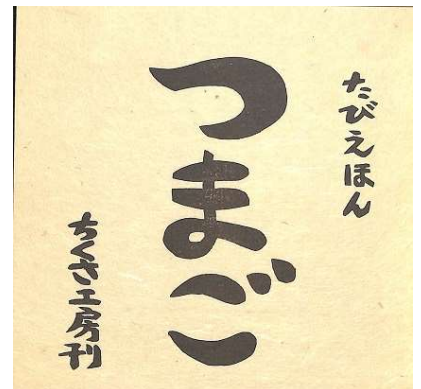 たびえほん
つまご
ちくさ工房刊